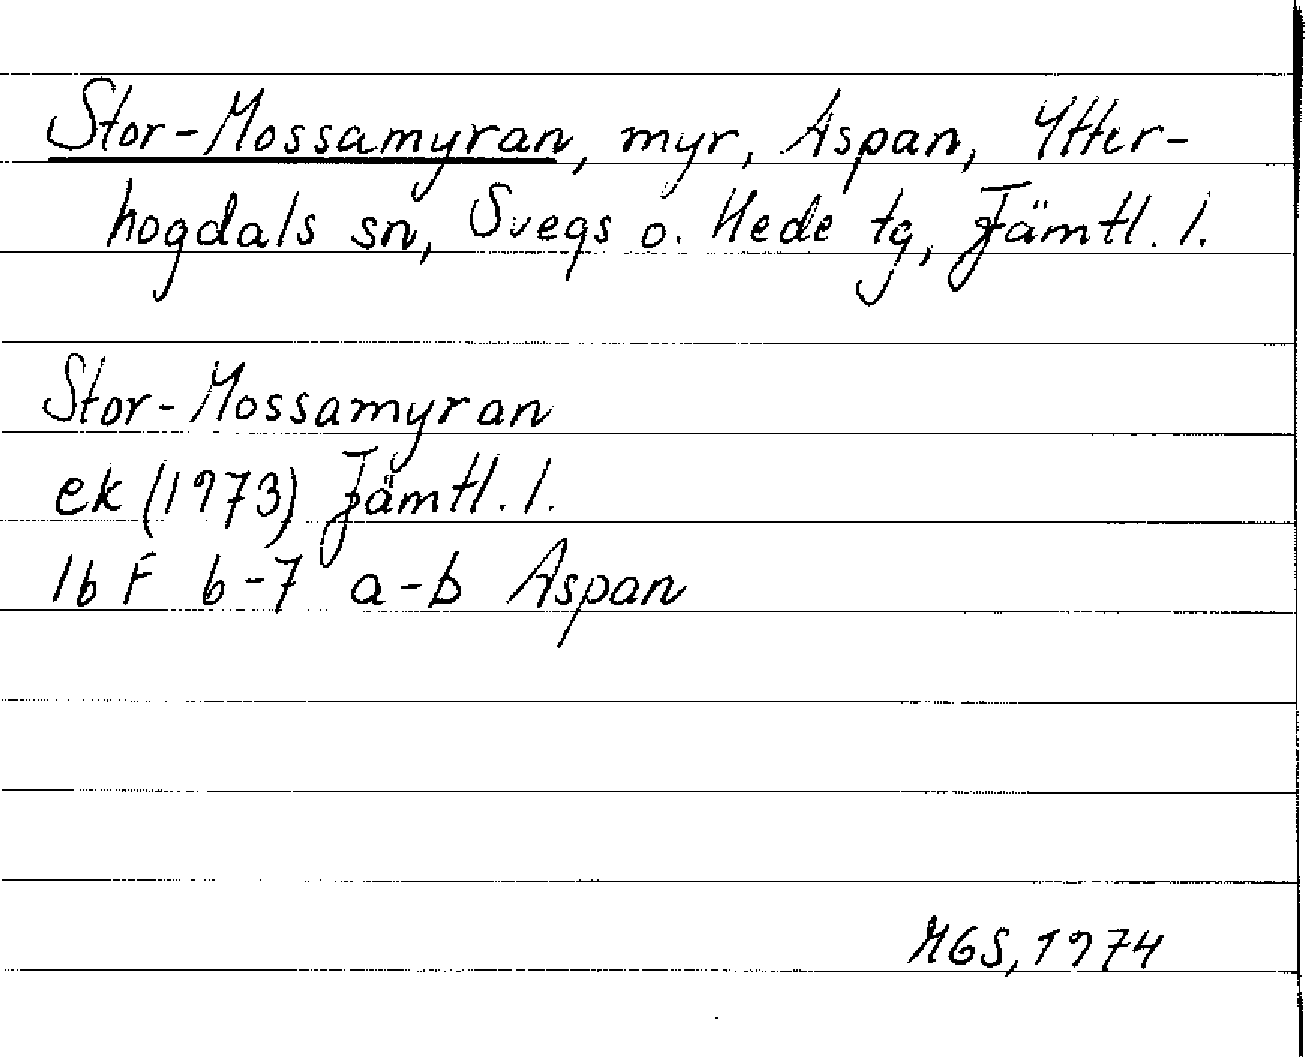 Stor-Mossamyran, myr, Aspan, Ytter-
hogdals sn, Svegs o. Hede tg, Jämtl. l.
Stor-Mossamyran
ek (1973) Jämtl. l.
16 F 6-7 a-b Aspan
MGS, 1974